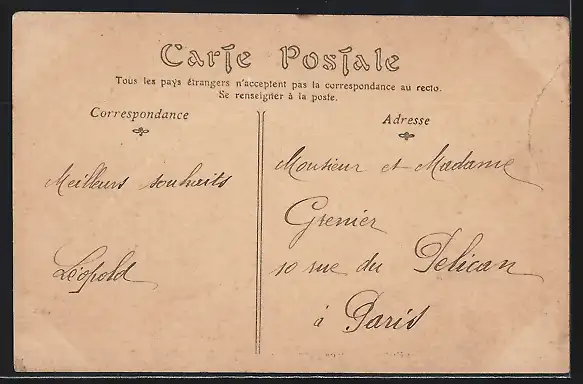 Carte Postale
Tous les pays étrangers n'acceptent pas la correspondance au recto.
Se renseigner à la poste.
Correspondance
Adresse
Meilleurs souhaits
Léopold
Monsieur et Madame
Grenier
10 rue du Pelican
à Paris